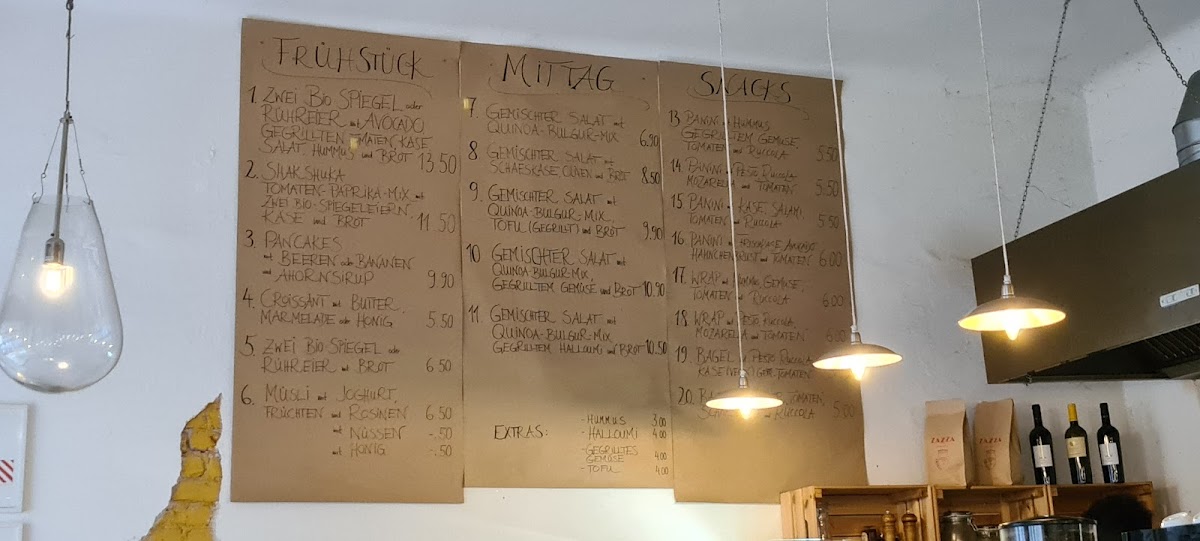 FRÜHSTÜCK
1. ZWEI BIO SPIEGEL oder
RÜHREIER mit AVOCADO
GEGRILLTEN TOMATEN, KÄSE
SALAT, HUMMUS und BROT 13.50
2. SHAKSHUKA
TOMATEN-PAPRIKA-MIX mit
ZWEI BIO-SPIEGELEIERN,
KÄSE und BROT 11.50
3. PANCAKES
mit BEEREN oder BANANEN
und AHORNSIRUP 9.90
4. CROISSANT mit BUTTER,
MARMELADE oder HONIG 5.50
5. ZWEI BIO-SPIEGEL oder
RÜHREIER mit BROT 6.50
6. MÜSLI mit JOGHURT,
FRÜCHTEN und ROSINEN 6.50
mit NÜSSEN -.50
mit HONIG -.50
MITTAG
7. GEMISCHTER SALAT mit
QUINOA-BULGUR-MIX 6.90
8 GEMISCHTER SALAT mit
SCHAFSKÄSE OLIVEN und BROT 8.50
9. GEMISCHTER SALAT mit
QUINOA-BULGUR-MIX,
TOFU (GEGRILLT) und BROT 9.90
10 GEMISCHTER SALAT mit
QUINOA-BULGUR-MIX,
GEGRILLTEM GEMÜSE und BROT 10.90
11. GEMISCHTER SALAT mit
QUINOA-BULGUR-MIX,
GEGRILLTEM HALLOUMI und BROT 10.50
EXTRAS:
- HUMMUS 3.00
- HALLOUMI 4.00
- GEGRILLTES
GEMÜSE 4.00
- TOFU 4.00
SNACKS
13 PANINI HUMMUS
GEGRILLTEM GEMÜSE,
TOMATEN und RUCCOLA 5.50
14 PANINI PESTO RUCCOLA
MOZARELLA und TOMATEN 5.50
15 PANINI KÄSE, SALAMI,
TOMATEN und RUCCOLA 5.50
16. PANINI FRISCHKÄSE, AVOCADO
HÄHNCHENBRUST und TOMATEN 6.00
17. WRAP GEMÜSE,
TOMATEN und RUCCOLA 6.00
18. WRAP PESTO RUCCOLA,
MOZARELLA und TOMATEN 6.00
19. BAGEL PESTO RUCCOLA
KÄSE TOMATEN
20. TOMATEN,
RUCCOLA 5.00
ZAZZA
ZAZZA